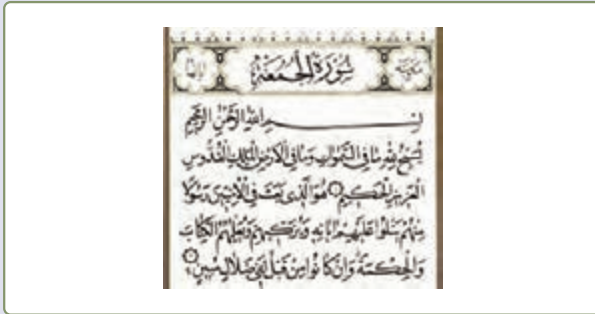 سُورَةُ الْجُمُعَةِ
بِسْمِ اللهِ الرَّحْمٰنِ الرَّحِيمِ
يُسَبِّحُ لِلّٰهِ مَا فِي السَّمٰوَاتِ وَمَا فِي الْاَرْضِ الْمَلِكِ الْقُدُّوسِ
الْعَزِيزِ الْحَكِيمِ هُوَ الَّذِي بَعَثَ فِي الْاُمِّيّنَ رَسُولًا
مِنْهُمْ يَتْلُوا عَلَيْهِمْ اٰيَاتِهِ وَيُزَكِّيهِمْ وَيُعَلِّمُهُمُ الْكِتَابَ
وَالْحِكْمَةَ وَاِنْ كَانُوا مِنْ قَبْلُ لَفِي ضَلَالٍ مُبِينٍ